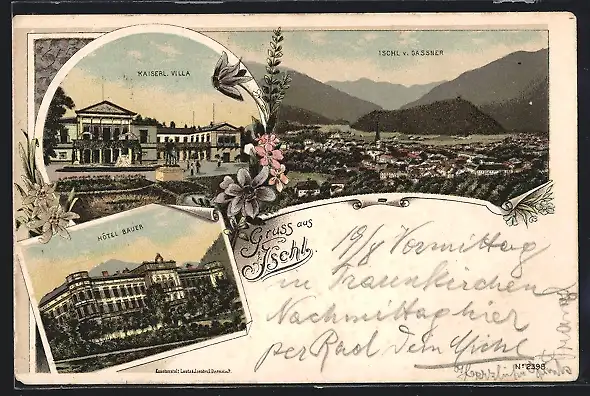 KAISERL. VILLA
ISCHL v. GASSNER
HÔTEL BAUER
Gruss aus
Ischl.
19/8 Vormittag
in Traunkirchen
Nachmittag hier
per Rad Dein
Nº 2398